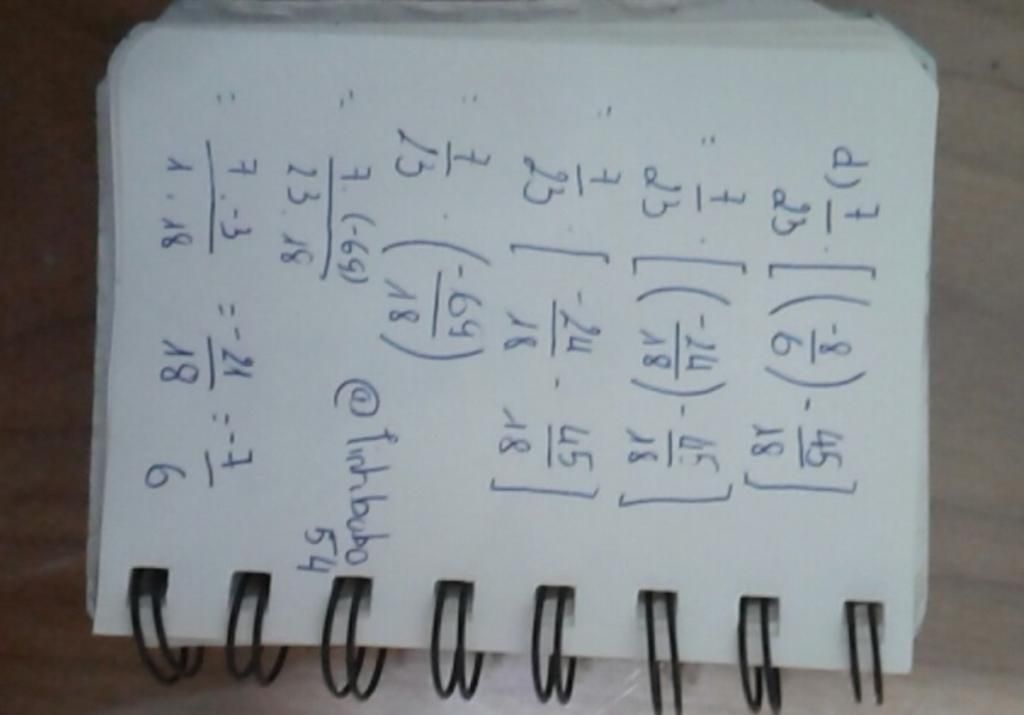 d) 7/23 · [(-8/6) - 45/18]
= 7/23 · [(-24/18) - 45/18]
= 7/23 · [-24/18 - 45/18]
= 7/23 · (-69/18)
= 7·(-69)/23·18
= 7·-3/1·18 = -21/18 = -7/6
54